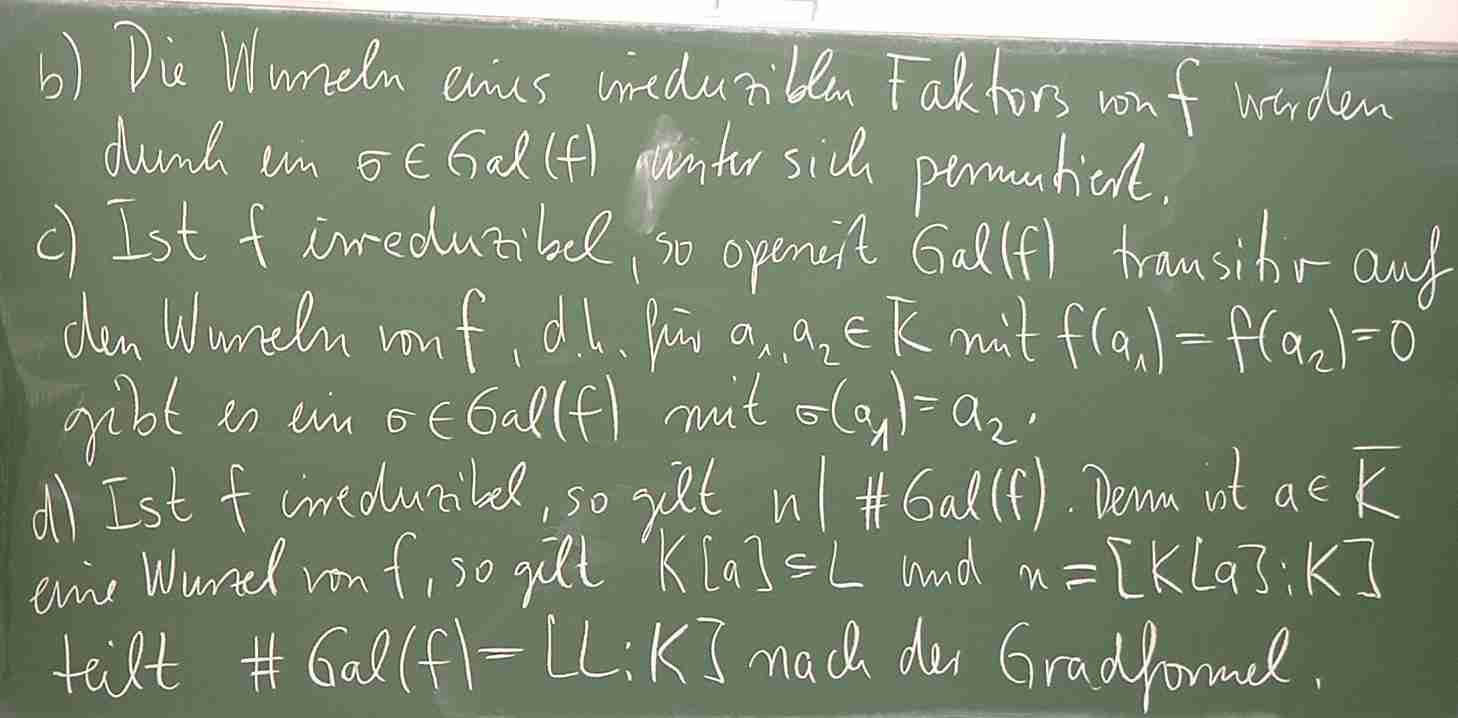 b) Die Wurzeln eines irreduziblen Faktors von f werden
durch ein σ ∈ Gal(f) unter sich permutiert.
c) Ist f irreduzibel, so operiert Gal(f) transitiv auf
den Wurzeln von f, d.h. für a₁, a₂ ∈ K̅ mit f(a₁) = f(a₂) = 0
gibt es ein σ ∈ Gal(f) mit σ(a₁) = a₂.
d) Ist f irreduzibel, so gilt n | # Gal(f). Denn ist a ∈ K̅
eine Wurzel von f, so gilt K[a] ⊆ L und n = [K[a]:K]
teilt # Gal(f) = [L:K] nach der Gradformel.